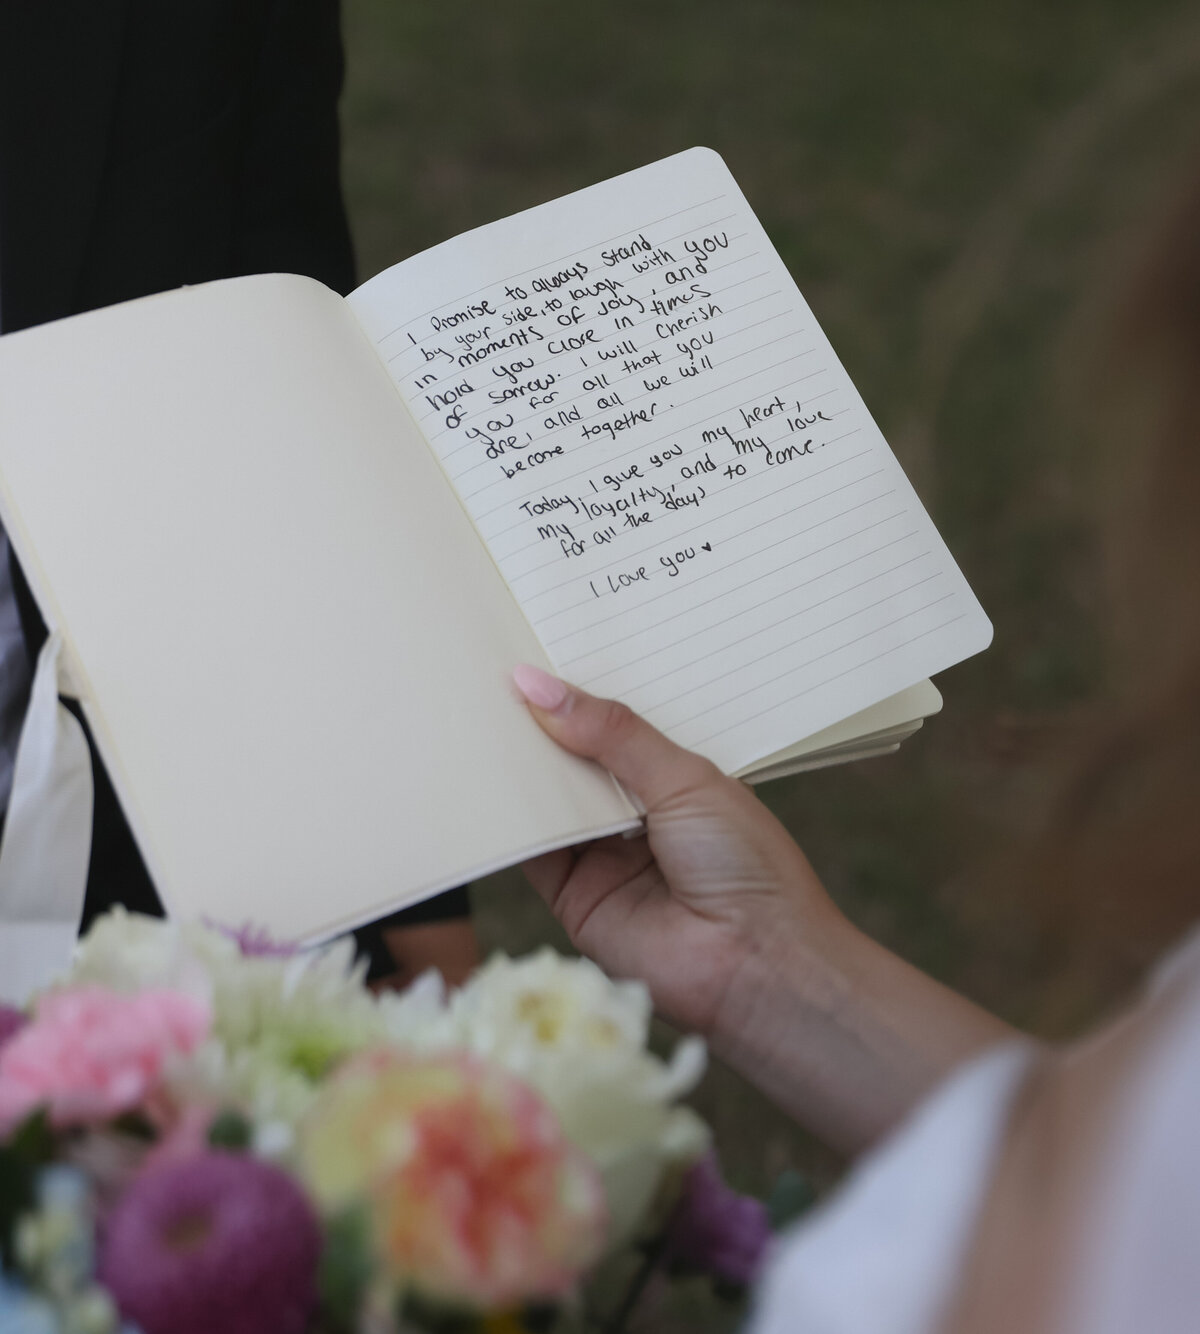 I Promise to always stand
by your side, to laugh with you
in moments of Joy, and
hold you close in times
of sorrow. I will cherish
you for all that you
are, and all we will
become together.
Today, I give you my heart,
my loyalty, and my love
for all the days to come.
I love you ♥